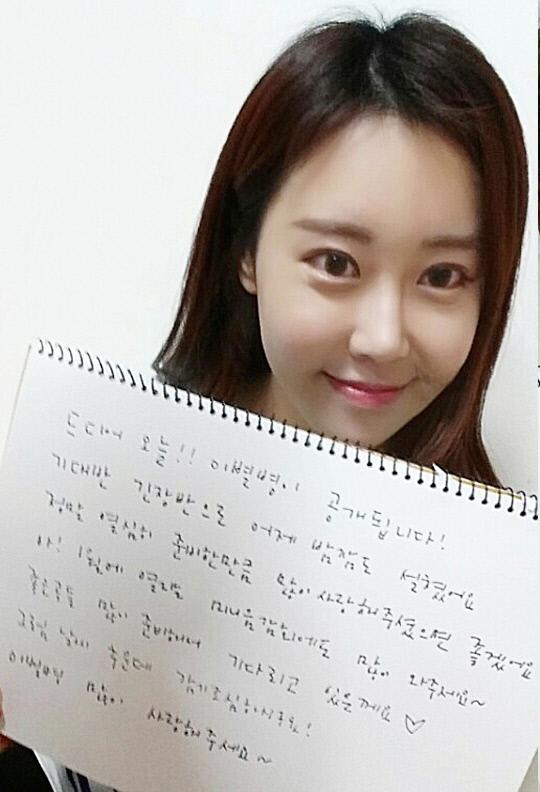 드디어 오늘!! 이별병이 공개됩니다!
기대반 긴장반으로 어제 밤잠도 설쳤어요
정말 열심히 준비한만큼 많이 사랑해주셨으면 좋겠어요
아! 1월에 열리는 미니음감회에도 많이 와주세요~
좋은곡들 많이 준비해서 기다리고 있을께요 ♡
그럼 날씨 추운데 감기조심하시구요!
이별병 많이 사랑해주세요~